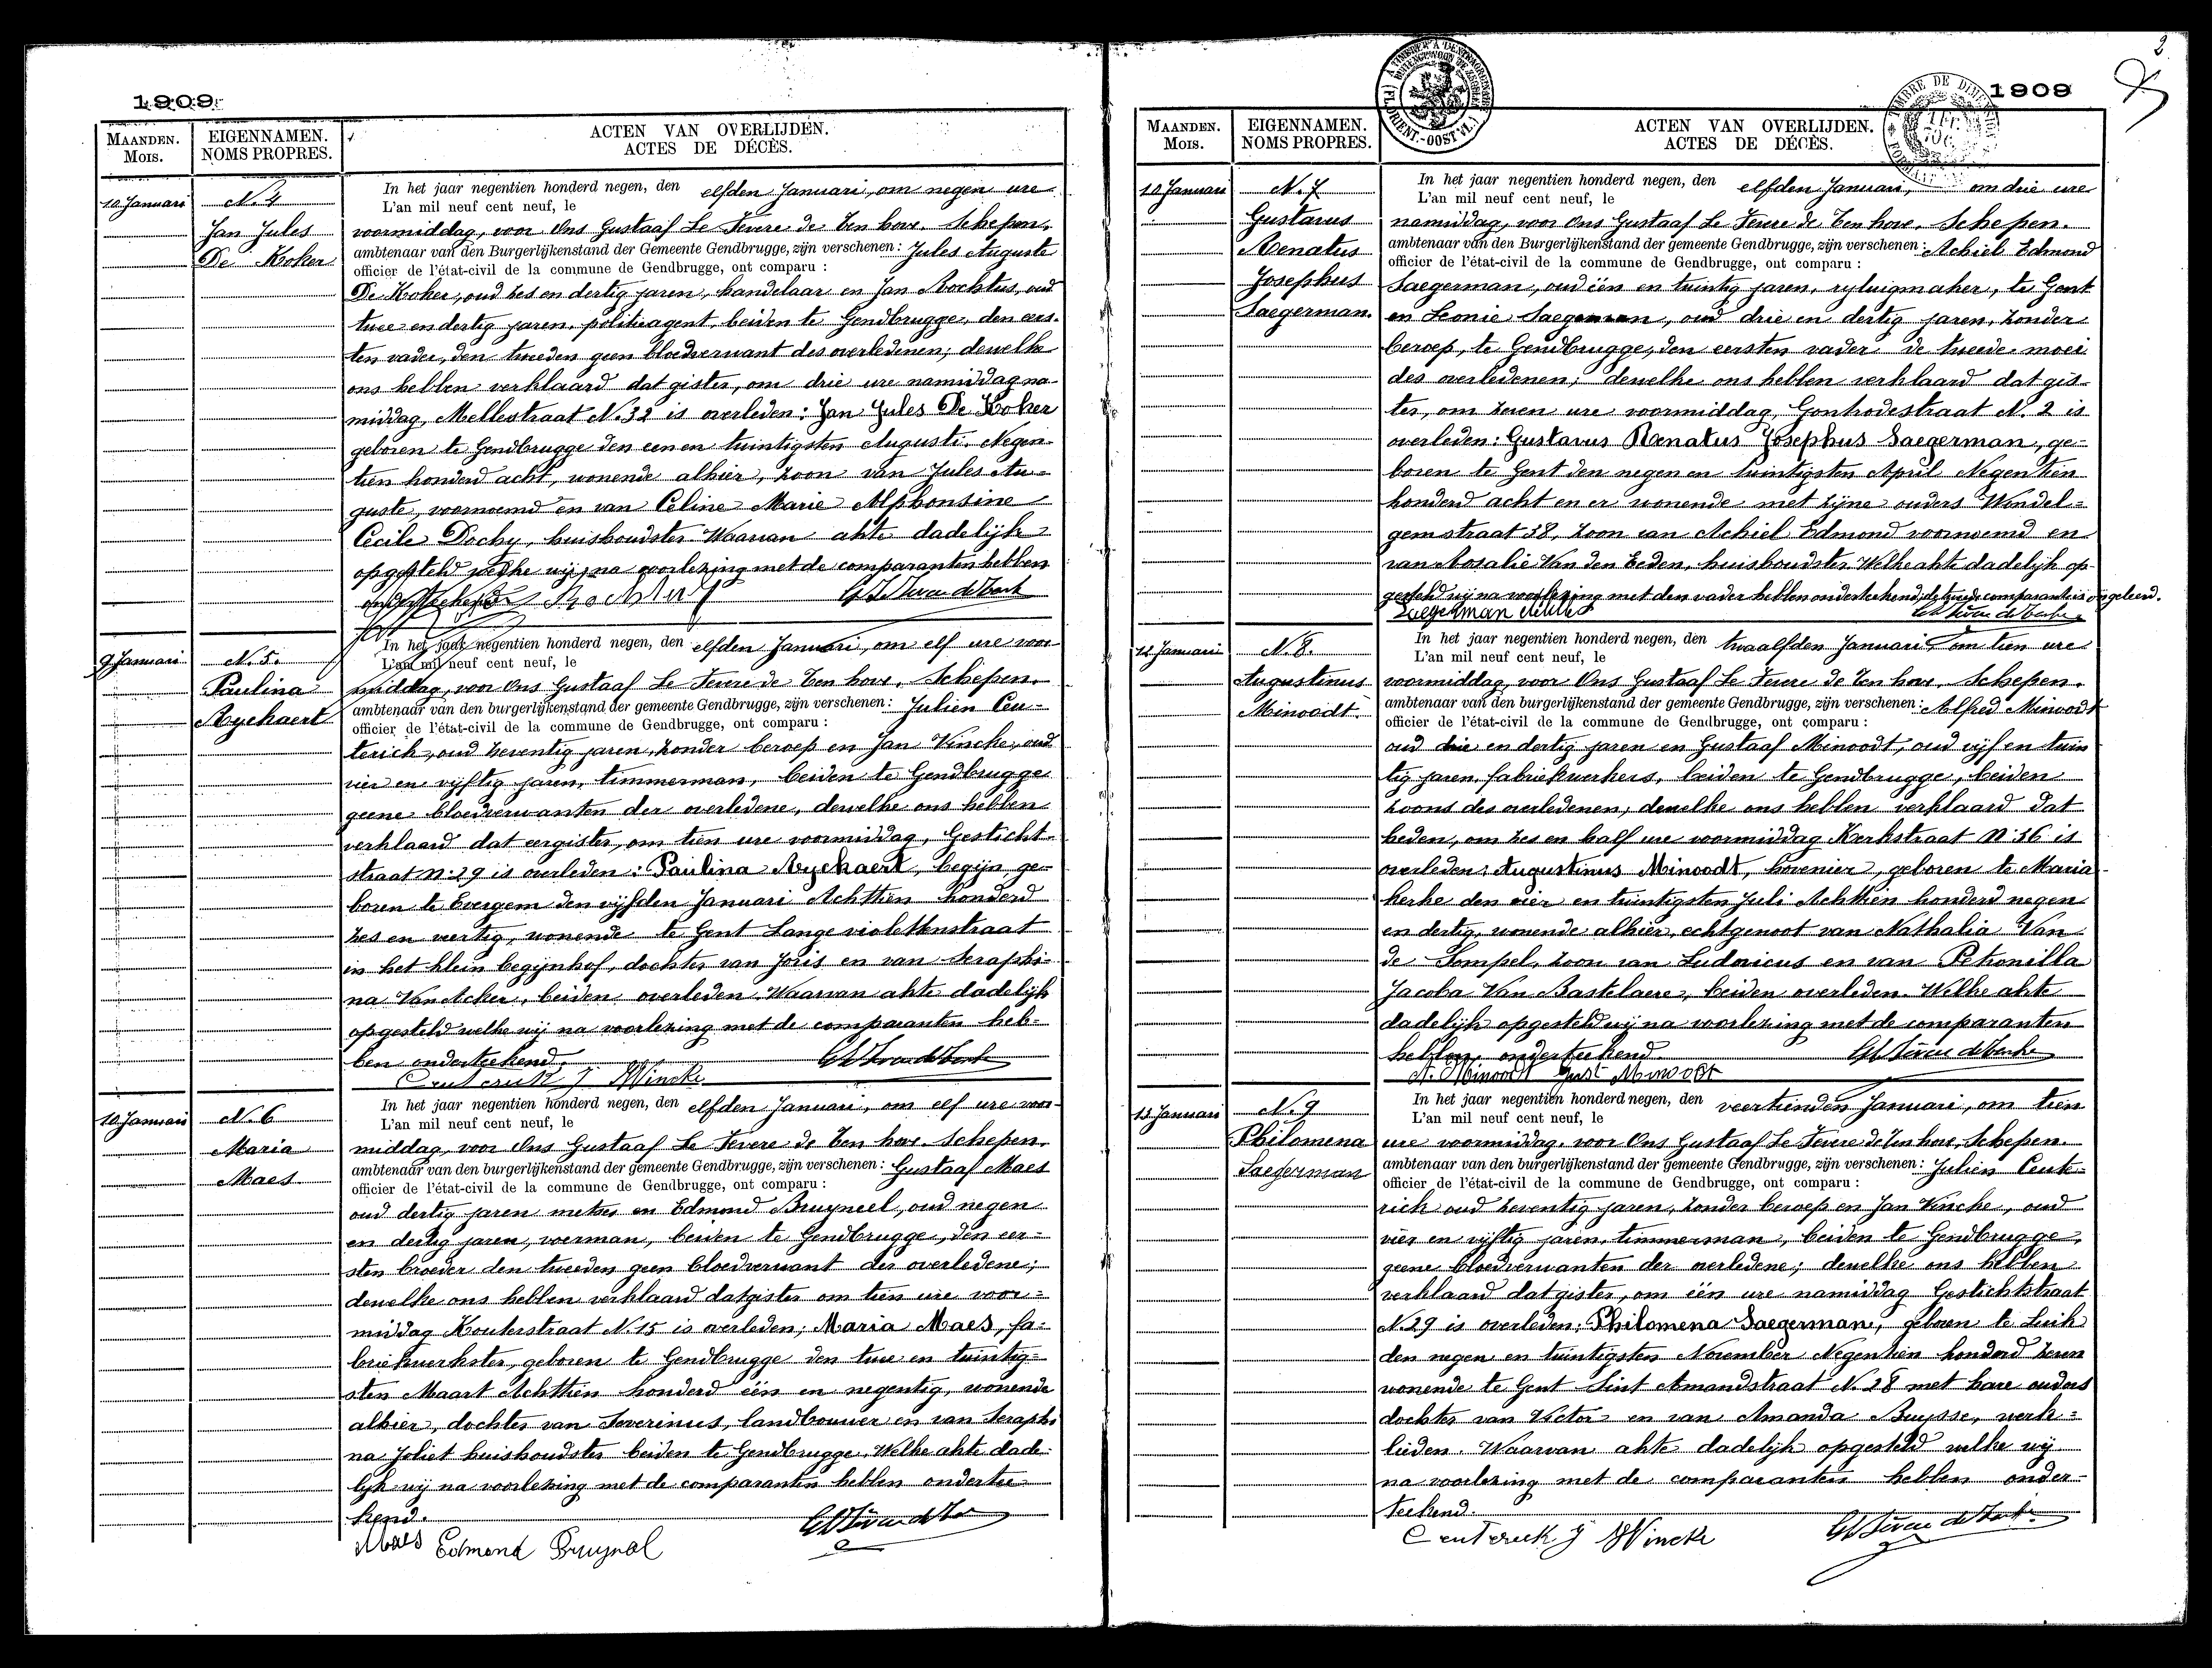 1909
MAANDEN.
MOIS.
EIGENNAMEN.
NOMS PROPRES.
ACTEN VAN OVERLIJDEN.
ACTES DE DÉCÈS.
10 Januari
N. 4
Jan Jules
De Koker
In het jaar negentien honderd negen, den elfden Januari, om negen ure
L'an mil neuf cent neuf, le
voormiddag, voor Ons Gustaaf Le Fevere de Ten hove, Schepen,
ambtenaar van den Burgerlijkenstand der Gemeente Gendbrugge, zijn verschenen: Jules Auguste
officier de l'état-civil de la commune de Gendbrugge, ont comparu :
De Koker, oud zes en dertig jaren, handelaar en Jan Rochtus, oud
twee en dertig jaren, politieagent, beiden te Gendbrugge, den eers-
ten vader, den tweeden geen bloedverwant des overledenen; dewelke
ons hebben verklaard dat gister, om drie ure namiddag na-
middag, Mellestraat N. 32 is overleden: Jan Jules De Koker
geboren te Gendbrugge den een en twintigsten Augusti Negen-
tien honderd acht, wonende alhier, zoon van Jules Au-
guste, voornoemd en van Celine Marie Alphonsine
Cecile Dochy, huishoudster. Waarvan akte dadelijk
opgesteld welke wij, na voorlezing met de comparanten hebben
9 Januari
N. 5.
Paulina
Ryckaert
In het jaar negentien honderd negen, den elfden Januari, om elf ure voor-
L'an mil neuf cent neuf, le
middag, voor Ons Gustaaf Le Fevere de Ten hove, Schepen,
ambtenaar van den burgerlijkenstand der gemeente Gendbrugge, zijn verschenen: Julien Ceu-
officier de l'état-civil de la commune de Gendbrugge, ont comparu :
terick, oud zeventig jaren, zonder beroep en Jan Vincke, oud
vier en vijftig jaren, timmerman, beiden te Gendbrugge
geene bloedverwanten der overledene, dewelke ons hebben
verklaard dat eergister, om tien ure voormiddag, Gesticht-
straat N. 29 is overleden: Paulina Ryckaert, begijn, ge-
boren te Evergem den vijfden Januari Achttien honderd
zes en veertig, wonende te Gent Lange violettenstraat
in het klein begijnhof, dochter van Joris en van Seraphi-
na Van Acker, beiden overleden. Waarvan akte dadelijk
opgesteld welke wij na voorlezing met de comparanten heb-
ben onderteekend.
Ceuterick J JVincke
10 Januari
N. 6
Maria
Maes
In het jaar negentien honderd negen, den elfden Januari, om elf ure voor-
L'an mil neuf cent neuf, le
middag, voor Ons Gustaaf Le Fevere de Ten hove, Schepen,
ambtenaar van den burgerlijkenstand der gemeente Gendbrugge, zijn verschenen: Gustaaf Maes
officier de l'état-civil de la commune de Gendbrugge, ont comparu :
oud dertig jaren metser en Edmond Bruyneel, oud negen
en dertig jaren, voerman, beiden te Gendbrugge, den eer-
sten broeder den tweeden geen bloedverwant der overledene;
dewelke ons hebben verklaard dat gister om tien ure voor-
middag Kouterstraat N. 15 is overleden; Maria Maes, fa-
briekwerkster, geboren te Gendbrugge den twee en twintig-
sten Maart Achttien honderd één en negentig, wonende
alhier, dochter van Severinus, landbouwer en van Seraphi
na Joliet huishoudster beiden te Gendbrugge. Welke akte dade-
lijk wij na voorlezing met de comparanten hebben ondertee
kend.
Maes Edmond Bruynol
2
1909
MAANDEN.
MOIS.
EIGENNAMEN.
NOMS PROPRES.
ACTEN VAN OVERLIJDEN.
ACTES DE DÉCÈS.
(FL. ORIENT.-OOST VL.)
TIMBRE DE DIMENSION
10 Januari
N. 7
Gustavus
Renatus
Josephus
Saegerman.
In het jaar negentien honderd negen, den elfden Januari, om drie ure
L'an mil neuf cent neuf, le
namiddag, voor Ons Gustaaf Le Fevere de Ten hove, Schepen.
ambtenaar van den Burgerlijkenstand der gemeente Gendbrugge, zijn verschenen: Achiel Edmond
officier de l'état-civil de la commune de Gendbrugge, ont comparu :
Saegerman, oud één en twintig jaren, rytuigmaker, te Gent
en Leonie Saegerman, oud drie en dertig jaren, zonder
beroep, te Gendbrugge, den eersten vader de tweede moei
des overledenen; dewelke ons hebben verklaard dat gis-
ter, om zeven ure voormiddag, Gontrodestraat N. 2 is
overleden: Gustavus Renatus Josephus Saegerman, ge-
boren te Gent den negen en twintigsten April Negentien
honderd acht en er wonende met zijne ouders Wondel-
gemstraat 38, zoon van Achiel Edmond voornoemd en
van Rosalie Van den Eeden, huishoudster. Welke akte dadelijk op-
gesteld wij na voorlezing met den vader hebben onderteekend; de tweede comparante is ongeleerd.
Saegerman Achiel
11 Januari
N. 8.
Augustinus
Minoodt.
In het jaar negentien honderd negen, den twaalfden Januari, om tien ure
L'an mil neuf cent neuf, le
voormiddag, voor Ons Gustaaf Le Fevere de Ten hove, Schepen.
ambtenaar van den burgerlijkenstand der gemeente Gendbrugge, zijn verschenen: Alfred Minoodt
officier de l'état-civil de la commune de Gendbrugge, ont comparu :
oud drie en dertig jaren en Gustaaf Minoodt, oud vijf en twin
tig jaren, fabriekwerkers, beiden te Gendbrugge, beiden
zoons des overledenen; dewelke ons hebben verklaard dat
heden, om zes en half ure voormiddag Kerkstraat N. 36 is
overleden: Augustinus Minoodt, hovenier, geboren te Maria-
kerke den vier en twintigsten Juli Achttien honderd negen
en dertig, wonende alhier, echtgenoot van Nathalia Van
de Sompel, zoon van Ludovicus en van Petronilla
Jacoba Van Bastelaere, beiden overleden. Welke akte
dadelijk opgesteld wij na voorlezing met de comparanten
hebben onderteekend.
A. Minoodt Gust Minoodt
13 Januari
N. 9
Philomena
Saegerman
In het jaar negentien honderd negen, den veertienden Januari, om tien
L'an mil neuf cent neuf, le
ure voormiddag, voor Ons Gustaaf Le Fevere de Ten hove, Schepen.
ambtenaar van den burgerlijkenstand der gemeente Gendbrugge, zijn verschenen: Julien Ceute-
officier de l'état-civil de la commune de Gendbrugge, ont comparu :
rick oud zeventig jaren, zonder beroep en Jan Vincke, oud
vier en vijftig jaren, timmerman, beiden te Gendbrugge,
geene bloedverwanten der overledene; dewelke ons hebben
verklaard dat gister, om één ure namiddag Gestichtstraat
N. 29 is overleden: Philomena Saegerman, geboren te Luik
den negen en twintigsten November Negentien honderd zeven
wonende te Gent Sint Amandstraat N. 28 met hare ouders
dochter van Victor en van Amanda Buysse, werk-
lieden. Waarvan akte dadelijk opgesteld welke wij
na voorlezing met de comparanten hebben onder-
teekend.
Ceuterick J JVincke